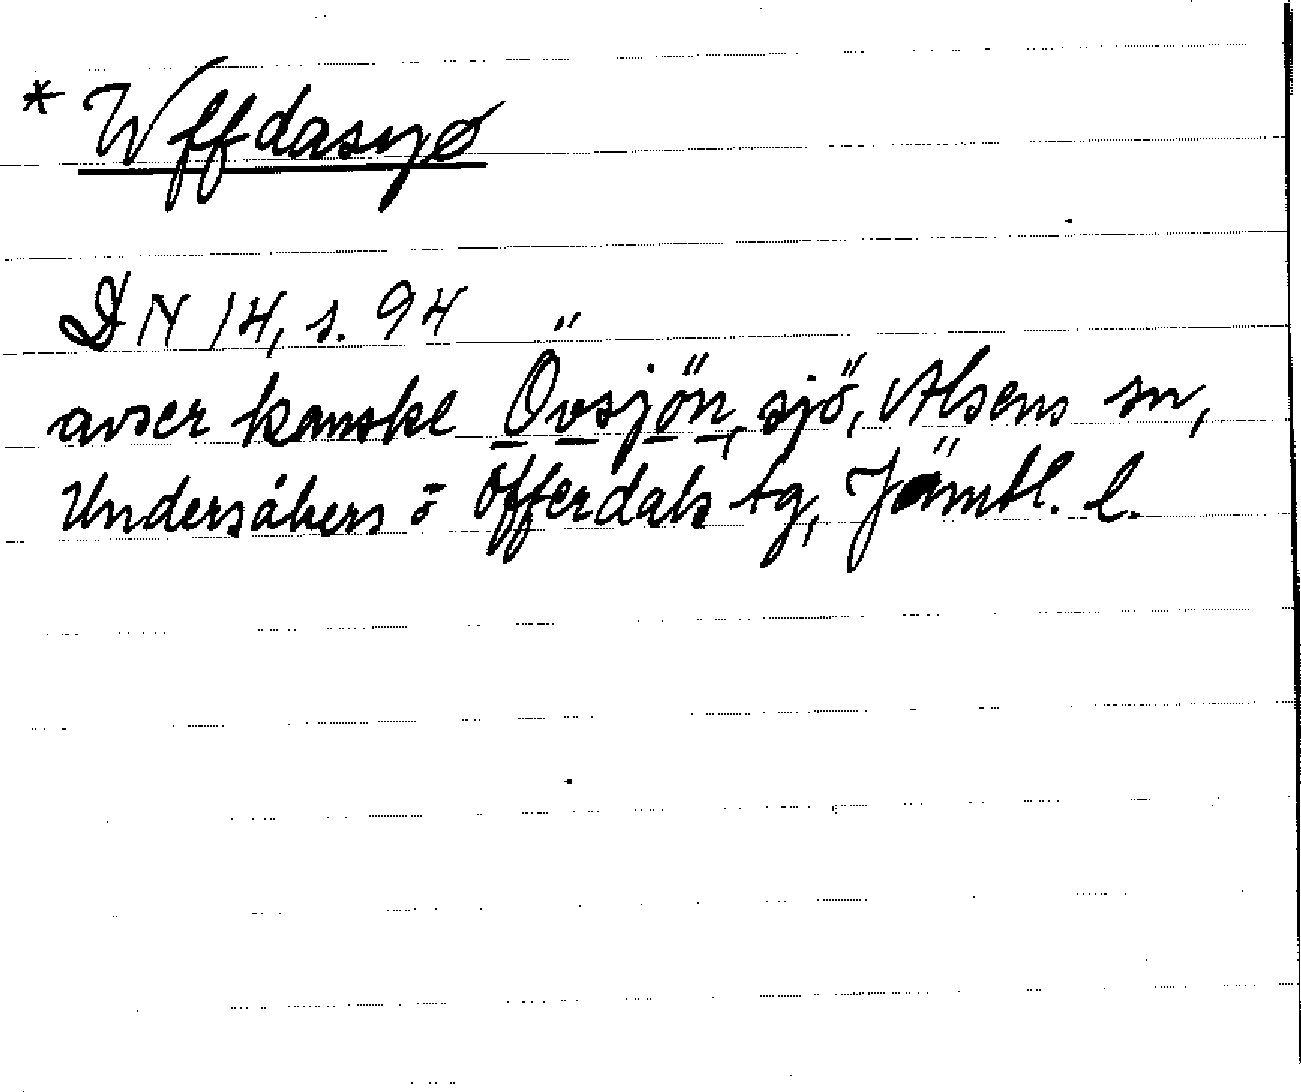 * Wffdasyø
DN 14, s. 94
avser kanske Övsjön, sjö, Alsens sn,
Undersåkers o Offerdals tg, Jämtl. l.